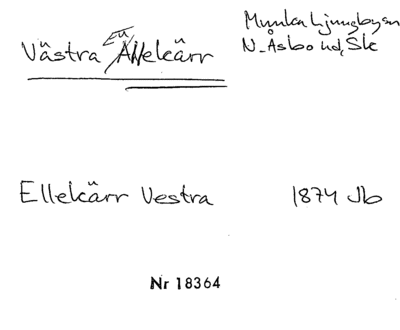 Västra Ellekärr
Munka Ljungby sn
N. Åsbo hd, Sk
Ellekärr Vestra 1874 Jb
Nr 18364